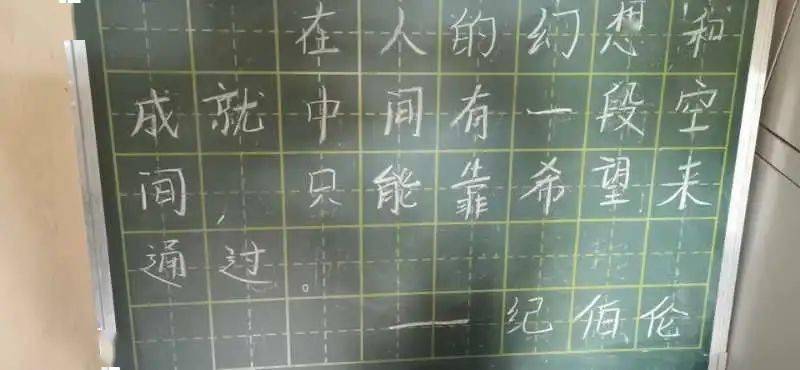 在人的幻想和
成就中间有一段空
间，只能靠希望来
通过。
——纪伯伦